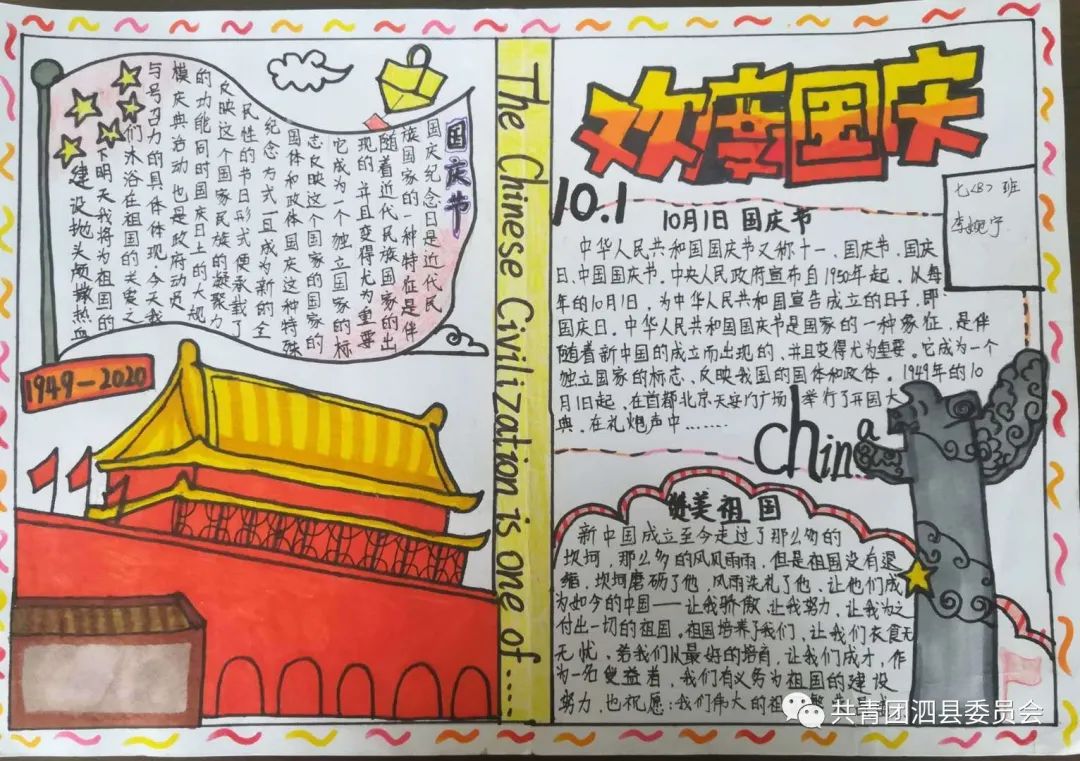 国庆节
国庆纪念日是近代民
族国家的一种特征是伴
随着近代民族国家的出
现的,并且变得尤为重要
它成为一个独立国家的标
志反映这个国家的国家的
国体和政体国庆这种特殊
纪念方式一旦成为新的全
民性的节日形式便承载了
反映这个国家民族的凝聚力
的功能同时国庆日上的大规
模庆典活动也是政府动员
与号召力的具体体现.今天我
们沐浴在祖国的关爱之
下明天我将为祖国的
建设抛头颅撒热血
1949-2020
The Chinese Civilization is one of......
欢度国庆
10.1
七<8>班
10月1日 国庆节
中华人民共和国国庆节又称十一、国庆节、国庆
日、中国国庆节.中央人民政府宣布自1950年起,以每
年的10月1日,为中华人民共和国宣告成立的日子,即
国庆日.中华人民共和国国庆节是国家的一种象征,是伴
随着新中国的成立而出现的,并且变得尤为重要。它成为一个
独立国家的标志、反映我国的国体和政体。1949年的10
月1日起,在首都北京天安门广场举行了开国大
典,在礼炮声中……
china
赞美祖国
新中国成立至今走过了那么多的
坎坷,那么多的风风雨雨,但是祖国没有退
缩,坎坷磨砺了他,风雨洗礼了他,让他们成
为如今的中国——让我骄傲,让我努力,让我为之
付出一切的祖国。祖国培养了我们,让我们衣食无
无忧,若我们以最好的培育,让我们成才,作
为一名受益者,我们有义务为祖国的建设
努力,也祝愿:我们伟大的祖
共青团泗县委员会